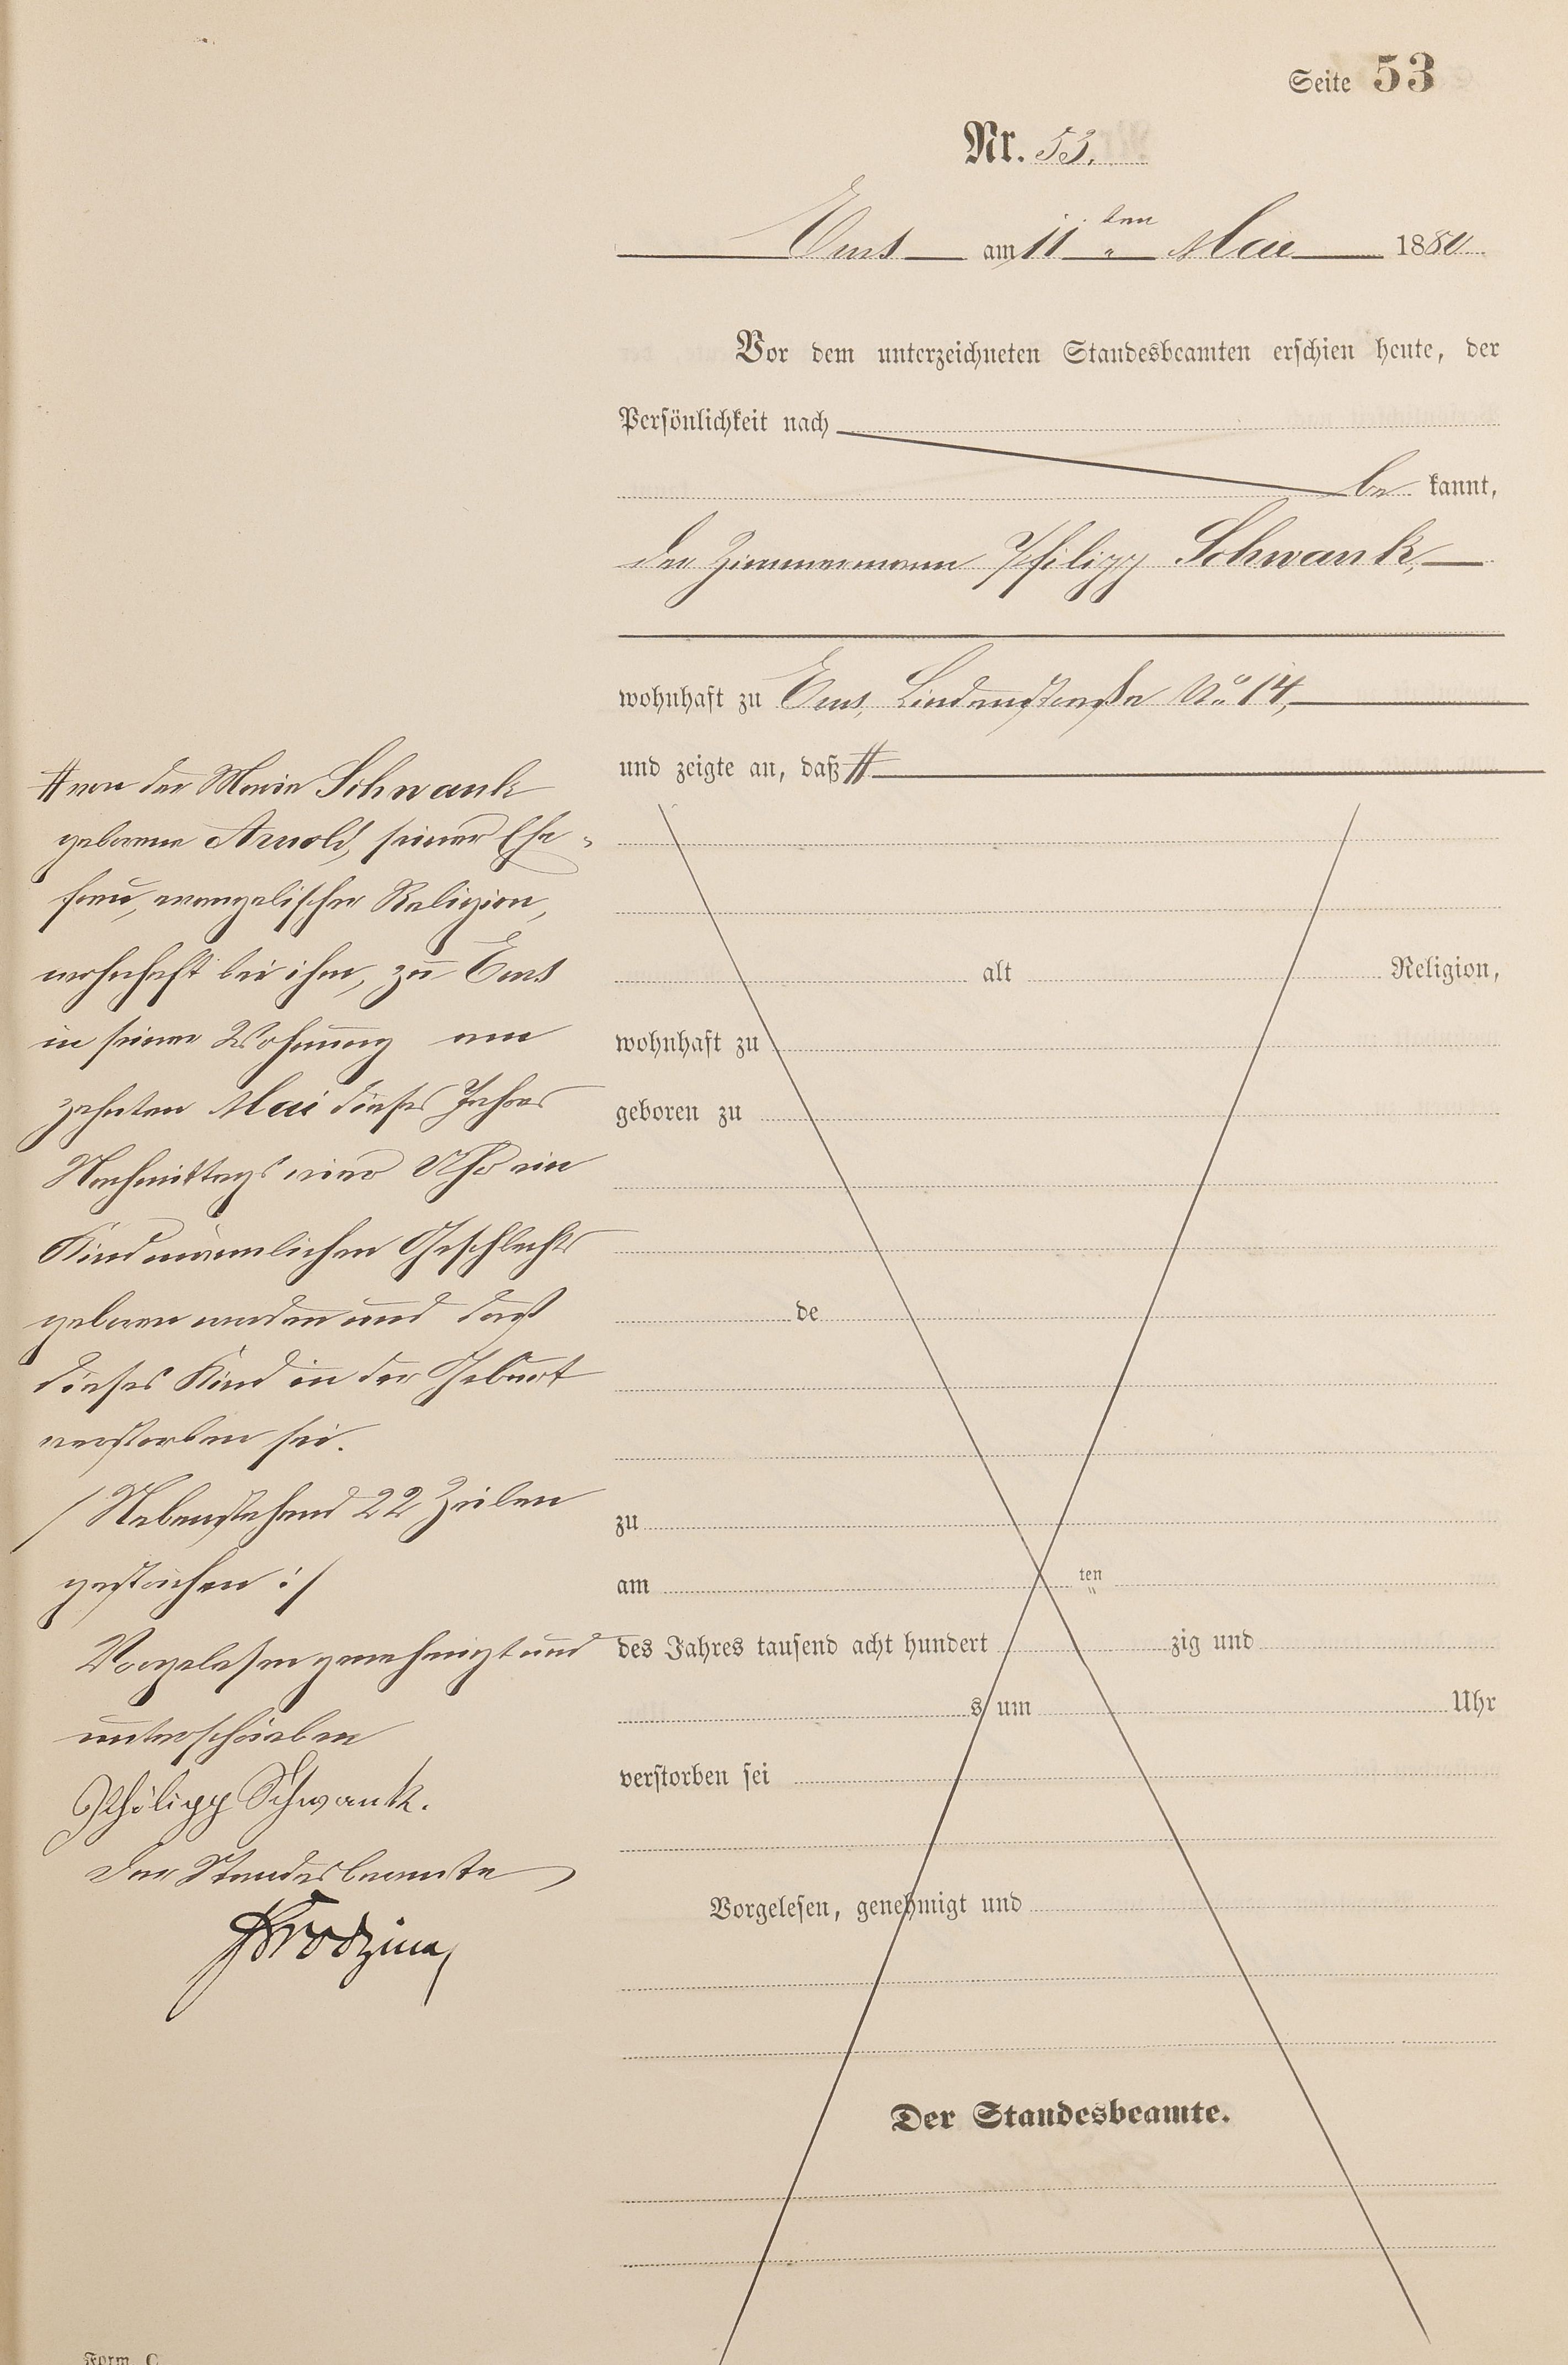 Seite 53
Nr. 53.
Ems am 11 ten Mai 1880
Vor dem unterzeichneten Standesbeamten erschien heute, der
Persönlichkeit nach
be kannt,
der Zimmermann Philipp Schwank,
wohnhaft zu Ems, Lindenstraße No 14,
und zeigte an, daß #
# von der Maria Schwank
geborene Arnold, seiner Ehe-
frau, evangelischer Religion,
wohnhaft bei ihm, zu Ems
in seiner Wohnung am
zehnten Mai dieses Jahres
Nachmittags vier Uhr ein
Kind männlichen Geschlechts
geboren worden und daß
dieses Kind in der Geburt
verstorben sei.
/ Nebenstehend 22 Zeilen
gestrichen :/
Vorgelesen genehmigt und
unterschrieben
Philipp Schwank.
Der Standesbeamte
alt Religion,
wohnhaft zu
geboren zu
de
zu
am ten
des Jahres tausend acht hundert zig und
s um Uhr
verstorben sei
Vorgelesen, genehmigt und
Der Standesbeamte.
Form. C